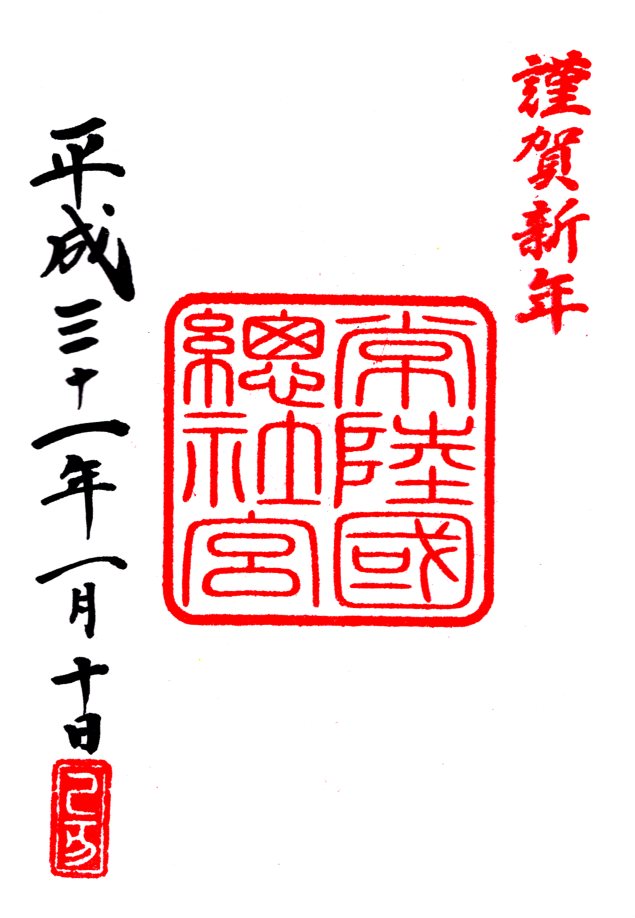 謹賀新年
常陸國
總社宮
平成三十一年一月十日
己亥